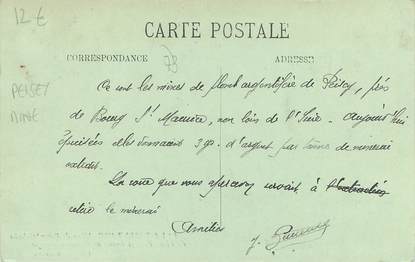 12 €
CARTE POSTALE
CORRESPONDANCE
73
ADRESSE
PEISEY
MINE
Ce sont les mines de plomb argentifère de Peisey, près
de Bourg St Maurice, non loin de l'Isère - Aujourd'hui
épuisées elles donnaient 3 gr. d'argent par tonne de minerai
extrait.
La roue que vous apercevez servait à l'
retirer le minerai
Amitiés
J.